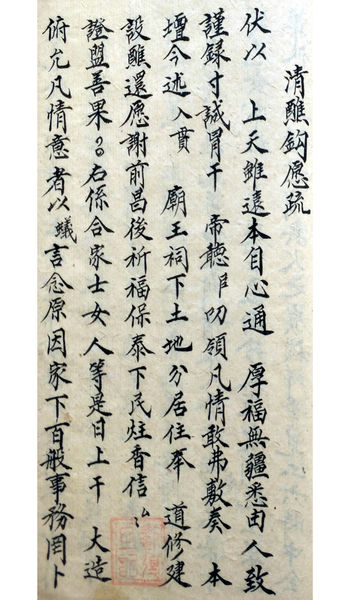 清醮鈎愿疏
伏以 上天雖遠本自心通 厚福無疆悉由人致
謹録寸誠冐干 帝聽 叩領凡情敢弗敷奏 本
壇今述入貫 廟王祠下土地分居住奉 道修建
設醮還愿謝前昌後祈福保泰下民炷香信
證盟善果 右係合家士女人等是日上干 大造
俯允凡情意者以蟻言念原因家下百般事務罔卜